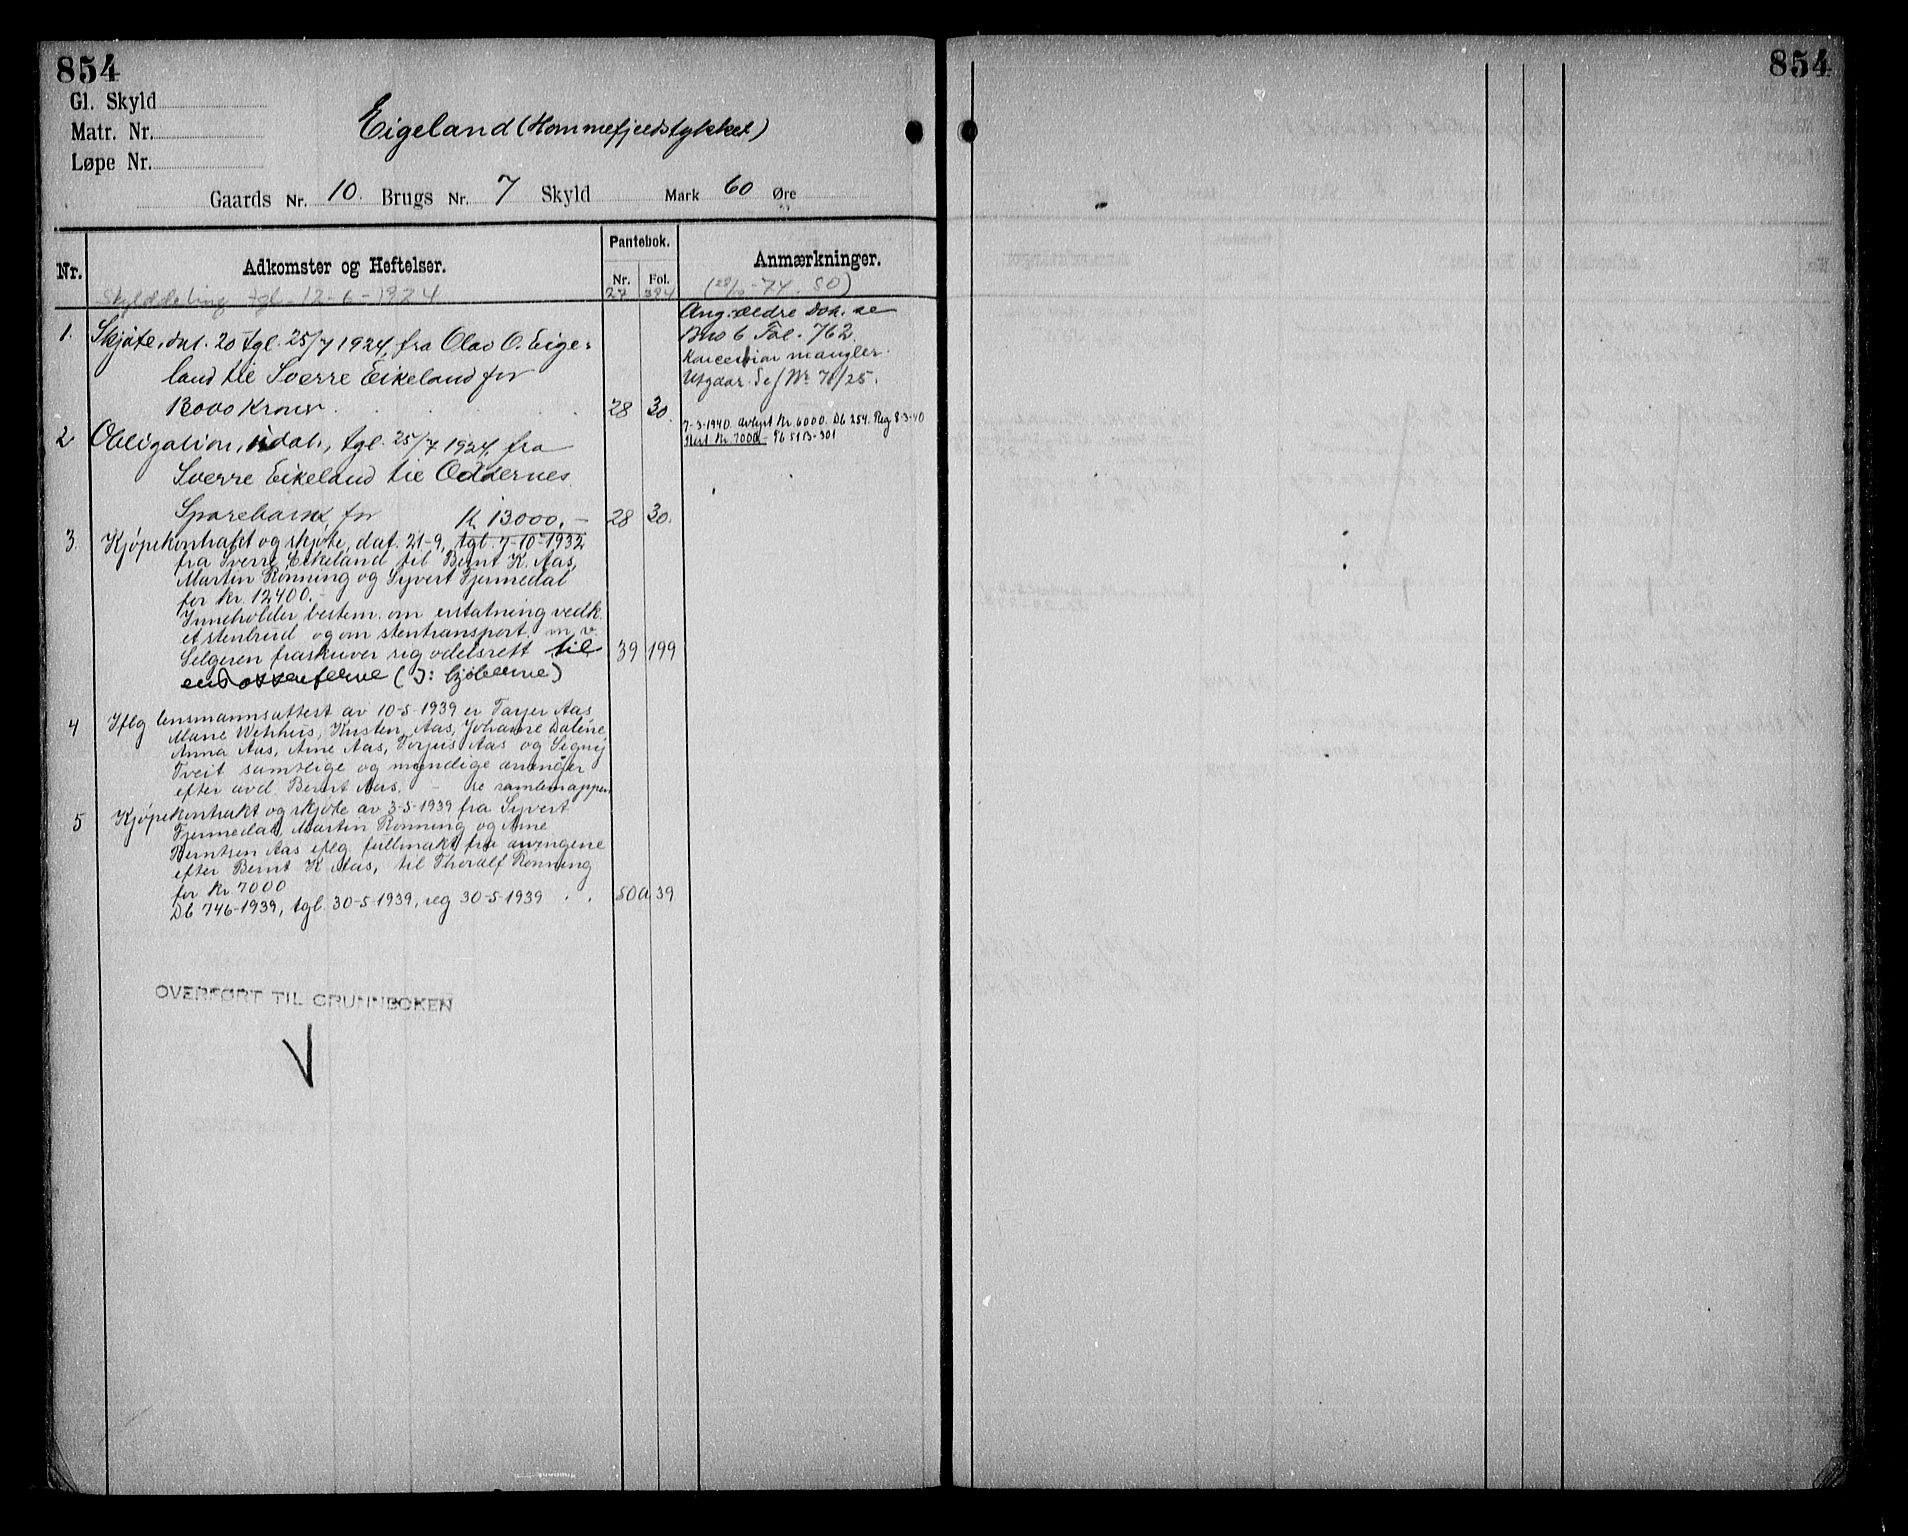 854
854
Gl. Skyld
Matr. Nr.
Løpe Nr.
Eigeland (Hommefjeldstykket)
Gaards Nr. 10. Brugs Nr. 7 Skyld Mark 60 Øre
Nr. Adkomster og Heftelser. Pantebok. Nr. Fol. Anmærkninger.
Skylddeling tgl. 12-6-1924 27 394
1. Skjøte, dat. 20 tgl. 25/7 1924, fra Olav O. Eige-
land til Sverre Eikeland for
13000 Kroner. 28 30.
Ang. ældre Dok. se
Bno 6 Fol. 762
Koncession mangler.
Utgaar. Sef Nr 71/25.
2 Obligation, udat., tgl. 25/7 1924, fra
Sverre Eikeland til Oddernes
Sparebank for K. 13000.- 28 30.
7-3-1940. avlyst Kr. 6000. Db 254. Reg 8-3-40
Rest Kr. 7000.- Pb 51B-301
3. Kjøpekontrakt og skjøte, dat. 21-9, tgl. 7-10-1932
fra Sverre Eikeland til Bernt K. Aas,
Martin Rønning og Syvert Tjomedal
for kr. 12400.-
Inneholder bestem. om erstatning vedk.
et stenbrud og om stentransport. m. v.
Selgeren fraskriver sig odelsrett til 39 199
(ɔ: kjøberne)
4 Iflg lensmannsattest av 10-5-1939 er Tarjer Aas
Marie Wehus, Kristen Aas, Johanne Dalene,
Anna Aas, Arne Aas, Torjus Aas og Signy
Tveit samtlige og myndige arvinger
efter avd. Bernt Aas. - se samlemappen
5 Kjøpekontrakt og skjøte av 3-5-1939 fra Syvert
Tjomedal, Martin Rønning og Arne
Berntsen Aas iflg. fullmakt fra arvingene
efter Bernt K Aas, til Thoralf Rønning
for kr 7000
Db 746-1939, tgl. 30-5-1939, reg 30-5-1939 . . 50a 39
OVERFØRT TIL GRUNNBOKEN